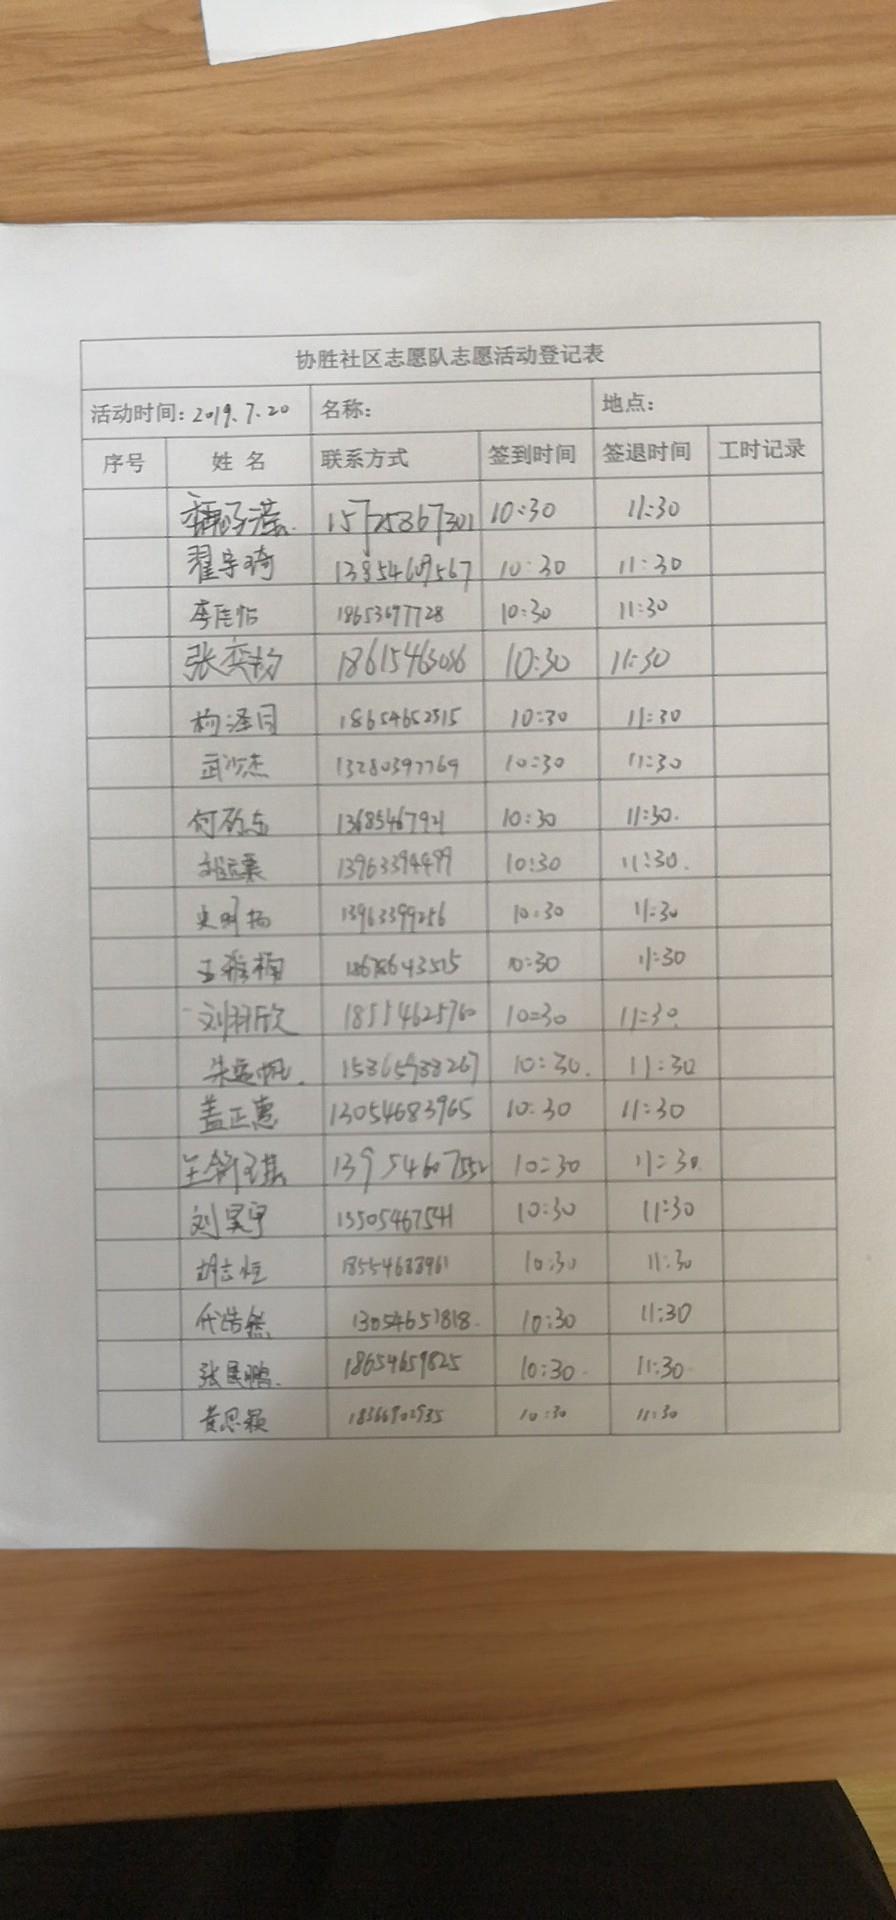 协胜社区志愿队志愿活动登记表
活动时间: 2019.7.20 名称: 地点:
序号 姓 名 联系方式 签到时间 签退时间 工时记录
15725867301 10:30 11:30
翟宇琦 13854609567 10:30 11:30
李佳怡 18653697728 10:30 11:30
张奕扬 18615463086 10:30 11:30
18654652515 10:30 11:30
武少杰 13280397769 10:30 11:30
13685467921 10:30 11:30.
13963394499 10:30 11:30.
史明扬 13963399256 10:30 11:30
王雅楠 18678643515 10:30 11:30
刘羽欣 18554625760 10:30 11:30.
朱 15865933267 10:30. 11:30
盖正惠 13054683965 10:30 11:30
13954607552 10:30 11:30.
刘昊宇 13505467541 10:30 11:30
胡志恒 18554688961 10:30 11:30
代浩然 13054651818. 10:30 11:30
张民鹏. 18654659825 10:30 11:30
黄思颖 18366902935 10:30 11:30